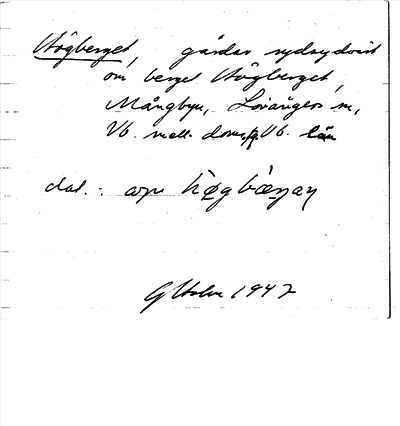 Högberget, gårdar sydsydväst
om berget Högberget,
Mångbyn, Lövångers sn,
Vb. mell. doms. Vb. län
dat. : högbæŋan
G Holm 1947